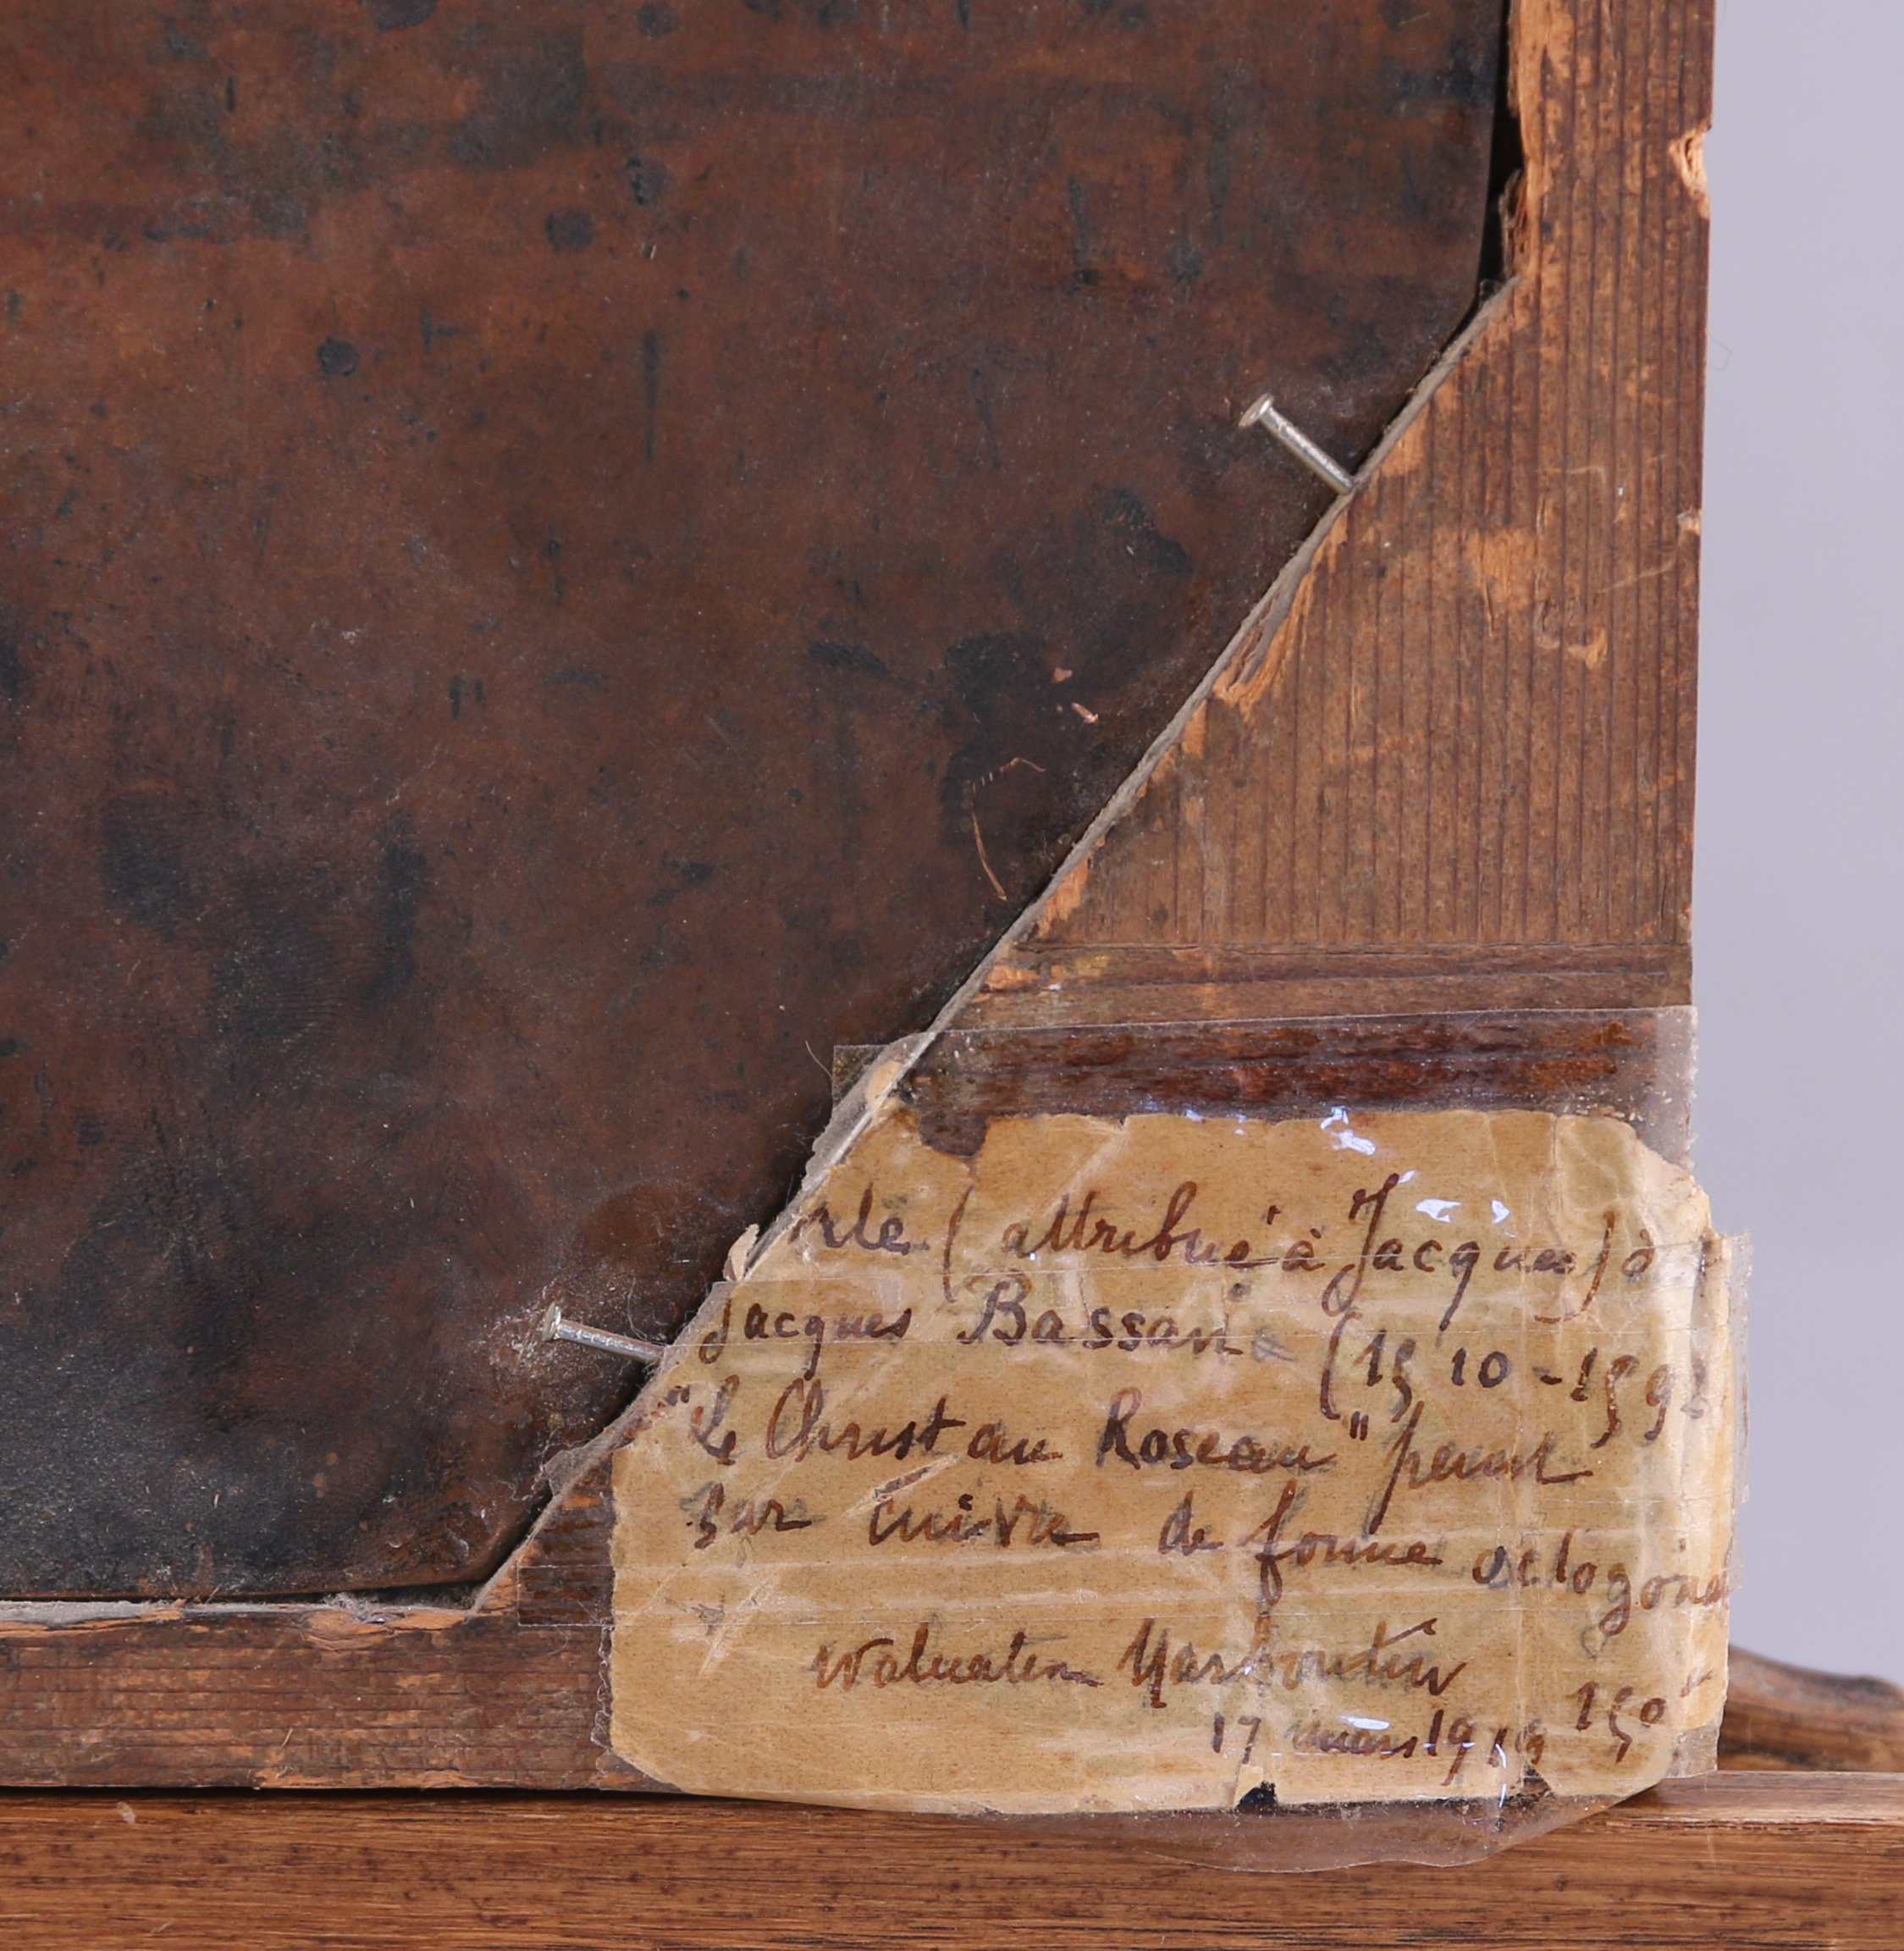 (attribué à Jacques) à
Jacques Bassan (1510-1592
"Le Christ au Roseau" peint
sur cuivre de forme octogona
17 mars 1919 150